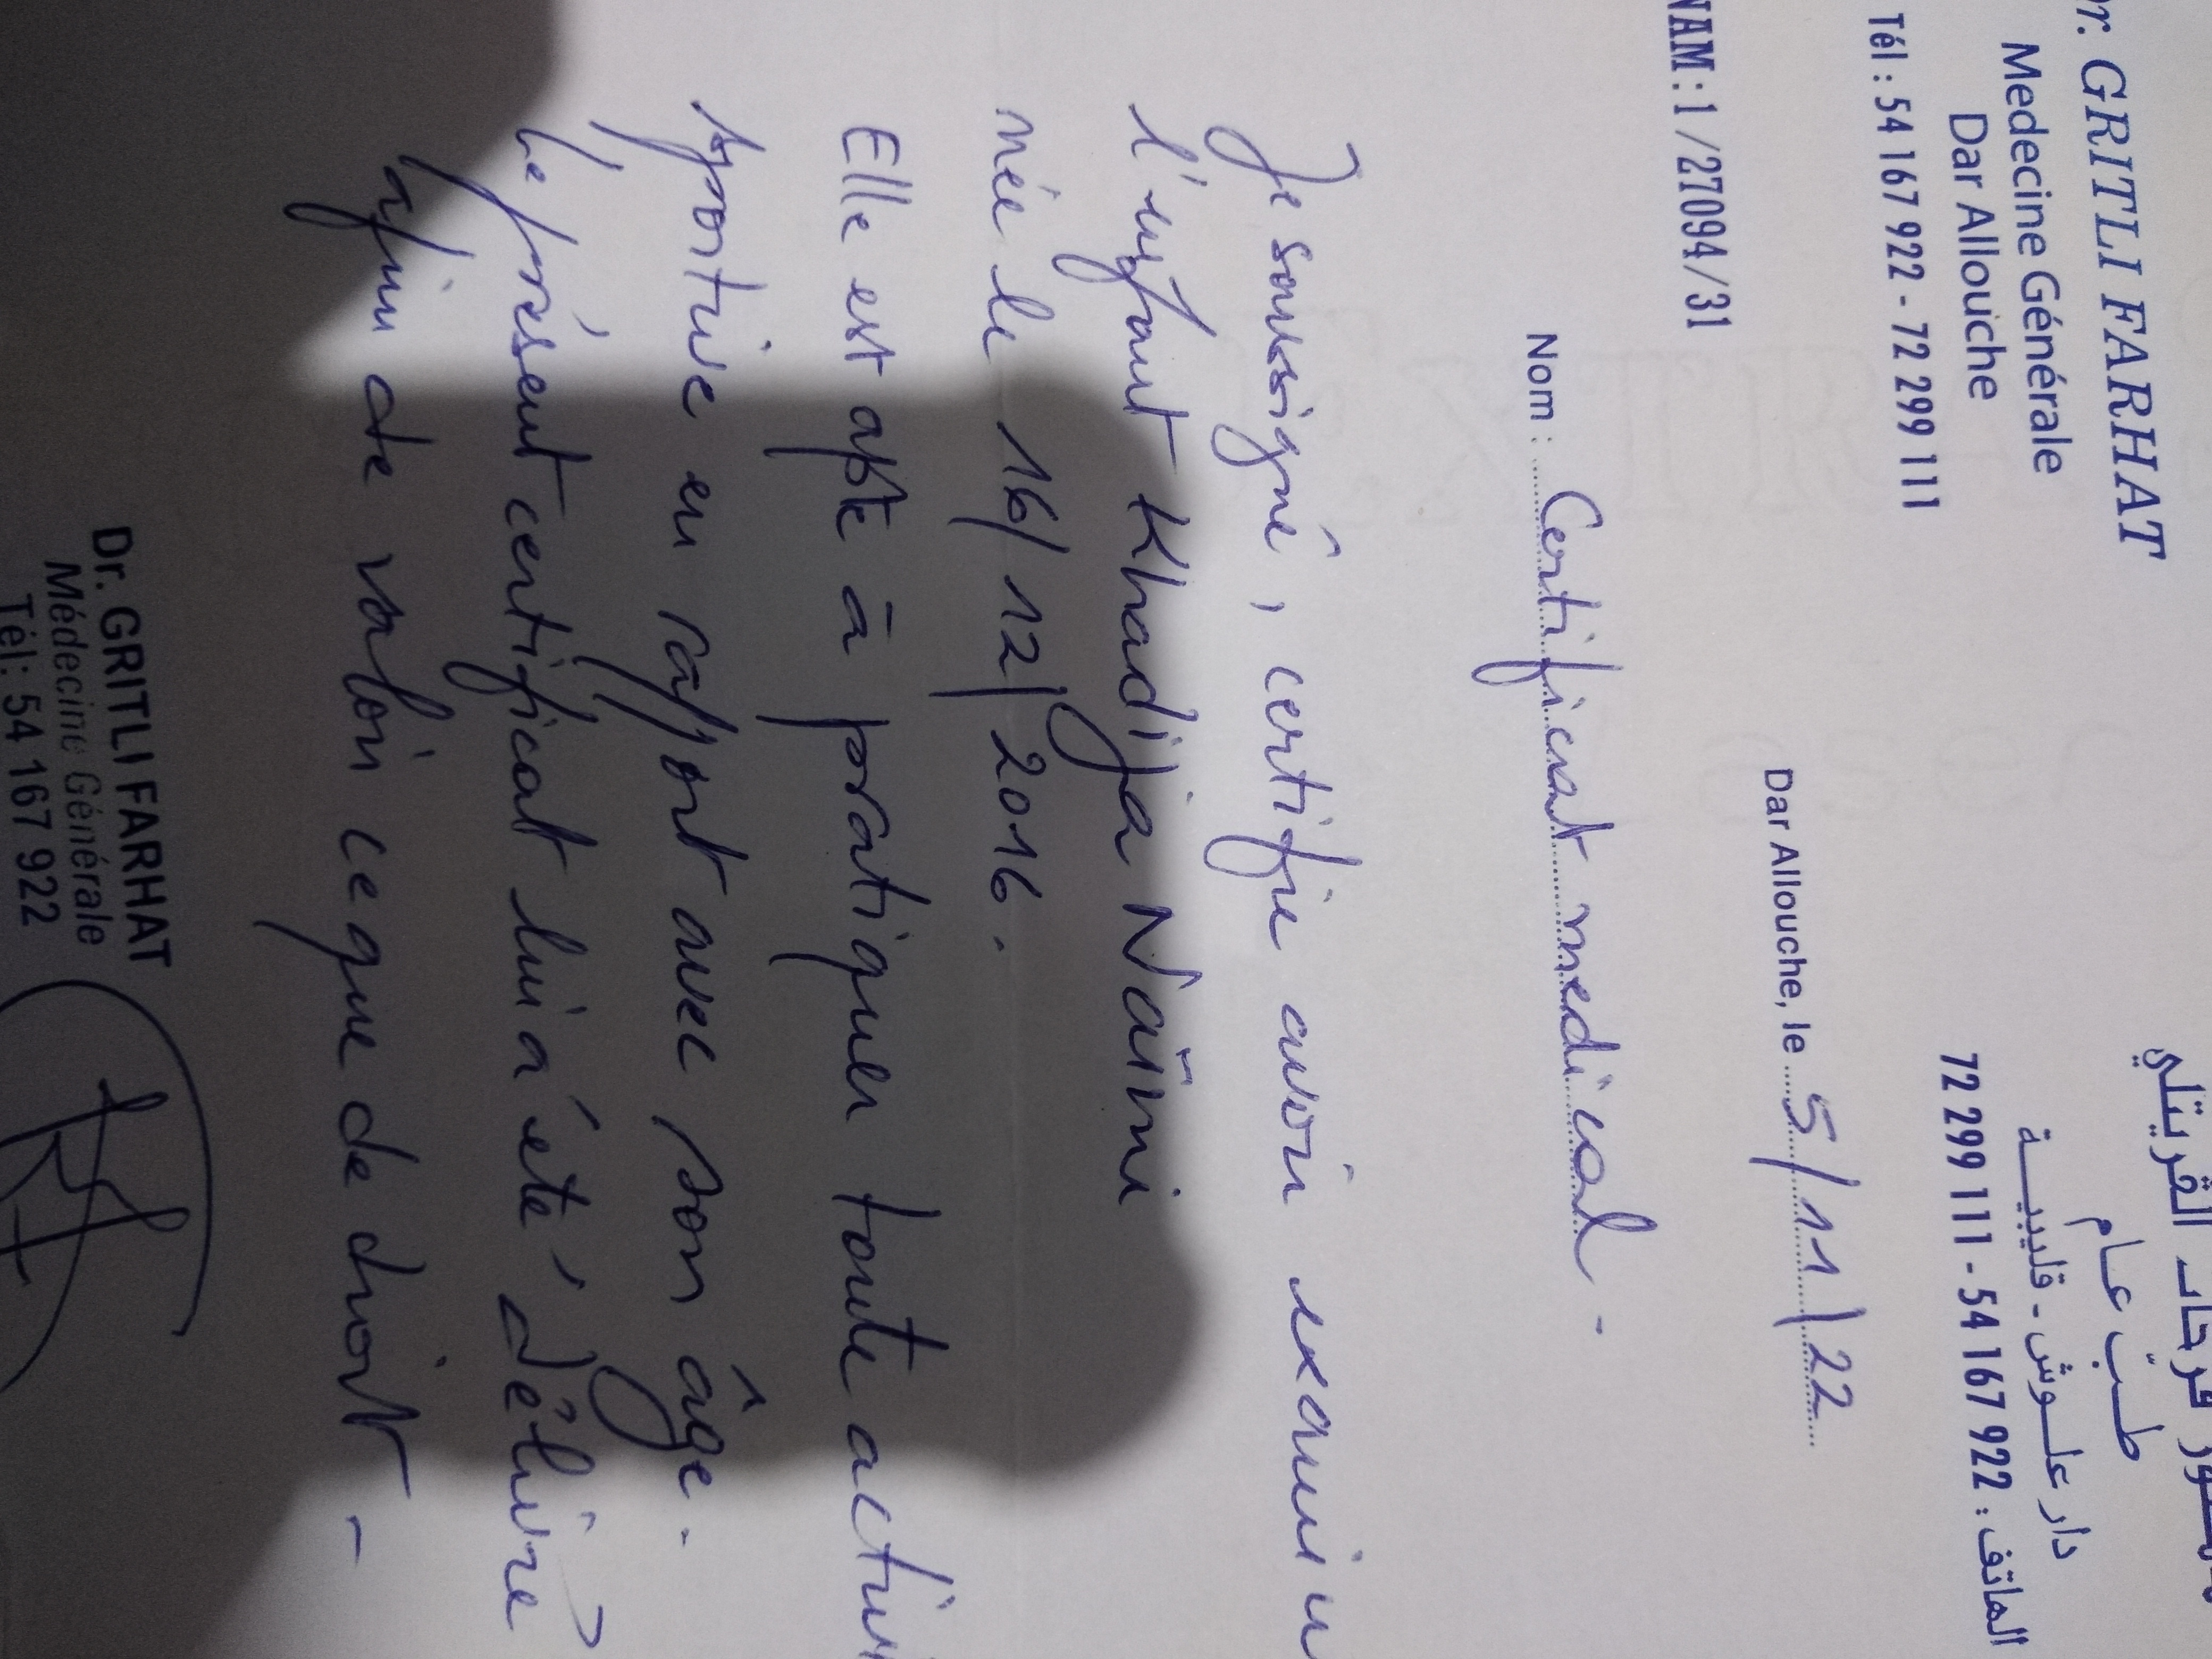 Dr. GRITLI FARHAT
Medecine Générale
Dar Allouche
Tél : 54 167 922 - 72 299 111
فرحات القريتلي
طبّ عام
دار علوش - قليبية
الهاتف : 922 167 54 - 111 299 72
NAM : 1 / 27094 / 31
Dar Allouche, le 5/11/22
Nom : Certificat medical.
Je soussigné, certifie avoir examin
l'enfant Khadija Naïmi
née le 16/12/2016.
Elle est apte à pratiquer toute activi
sportive en rapport avec son âge.
Le présent certificat lui a été, délivré
afin de valoir ce que de droit -
Dr. GRITLI FARHAT
Médecine Générale
Tél: 54 167 922